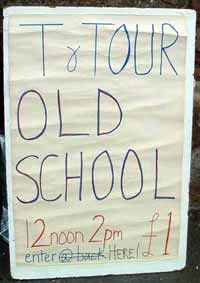 T & TOUR
OLD
SCHOOL
12 noon 2pm £1
enter @ back HERE!